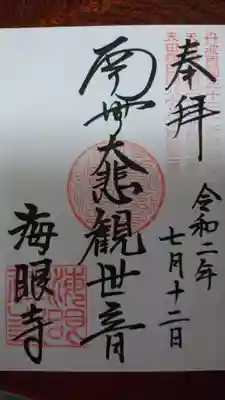 奉拝
令和二年
七月十二日
南無大悲觀世音
海眼寺